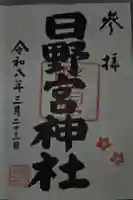 参拝
日野宮神社
令和八年三月二十三日